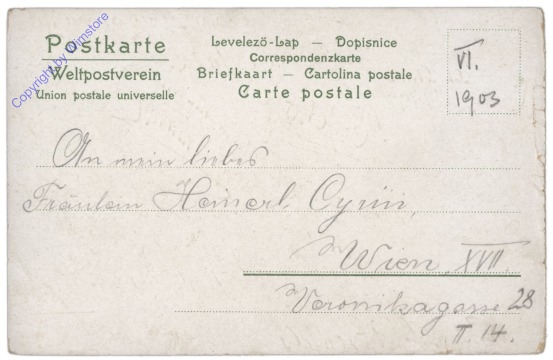 Postkarte
Weltpostverein
Union postale universelle
Levelező-Lap — Dopisnice
Correspondenzkarte
Briefkaart — Cartolina postale
Carte postale
VI.
1903
Copyright by Wimstore
An mein liebes
Fräulein Heinerl Cyrin,
Wien, XVII.
Veronikagasse 28
II. 14.